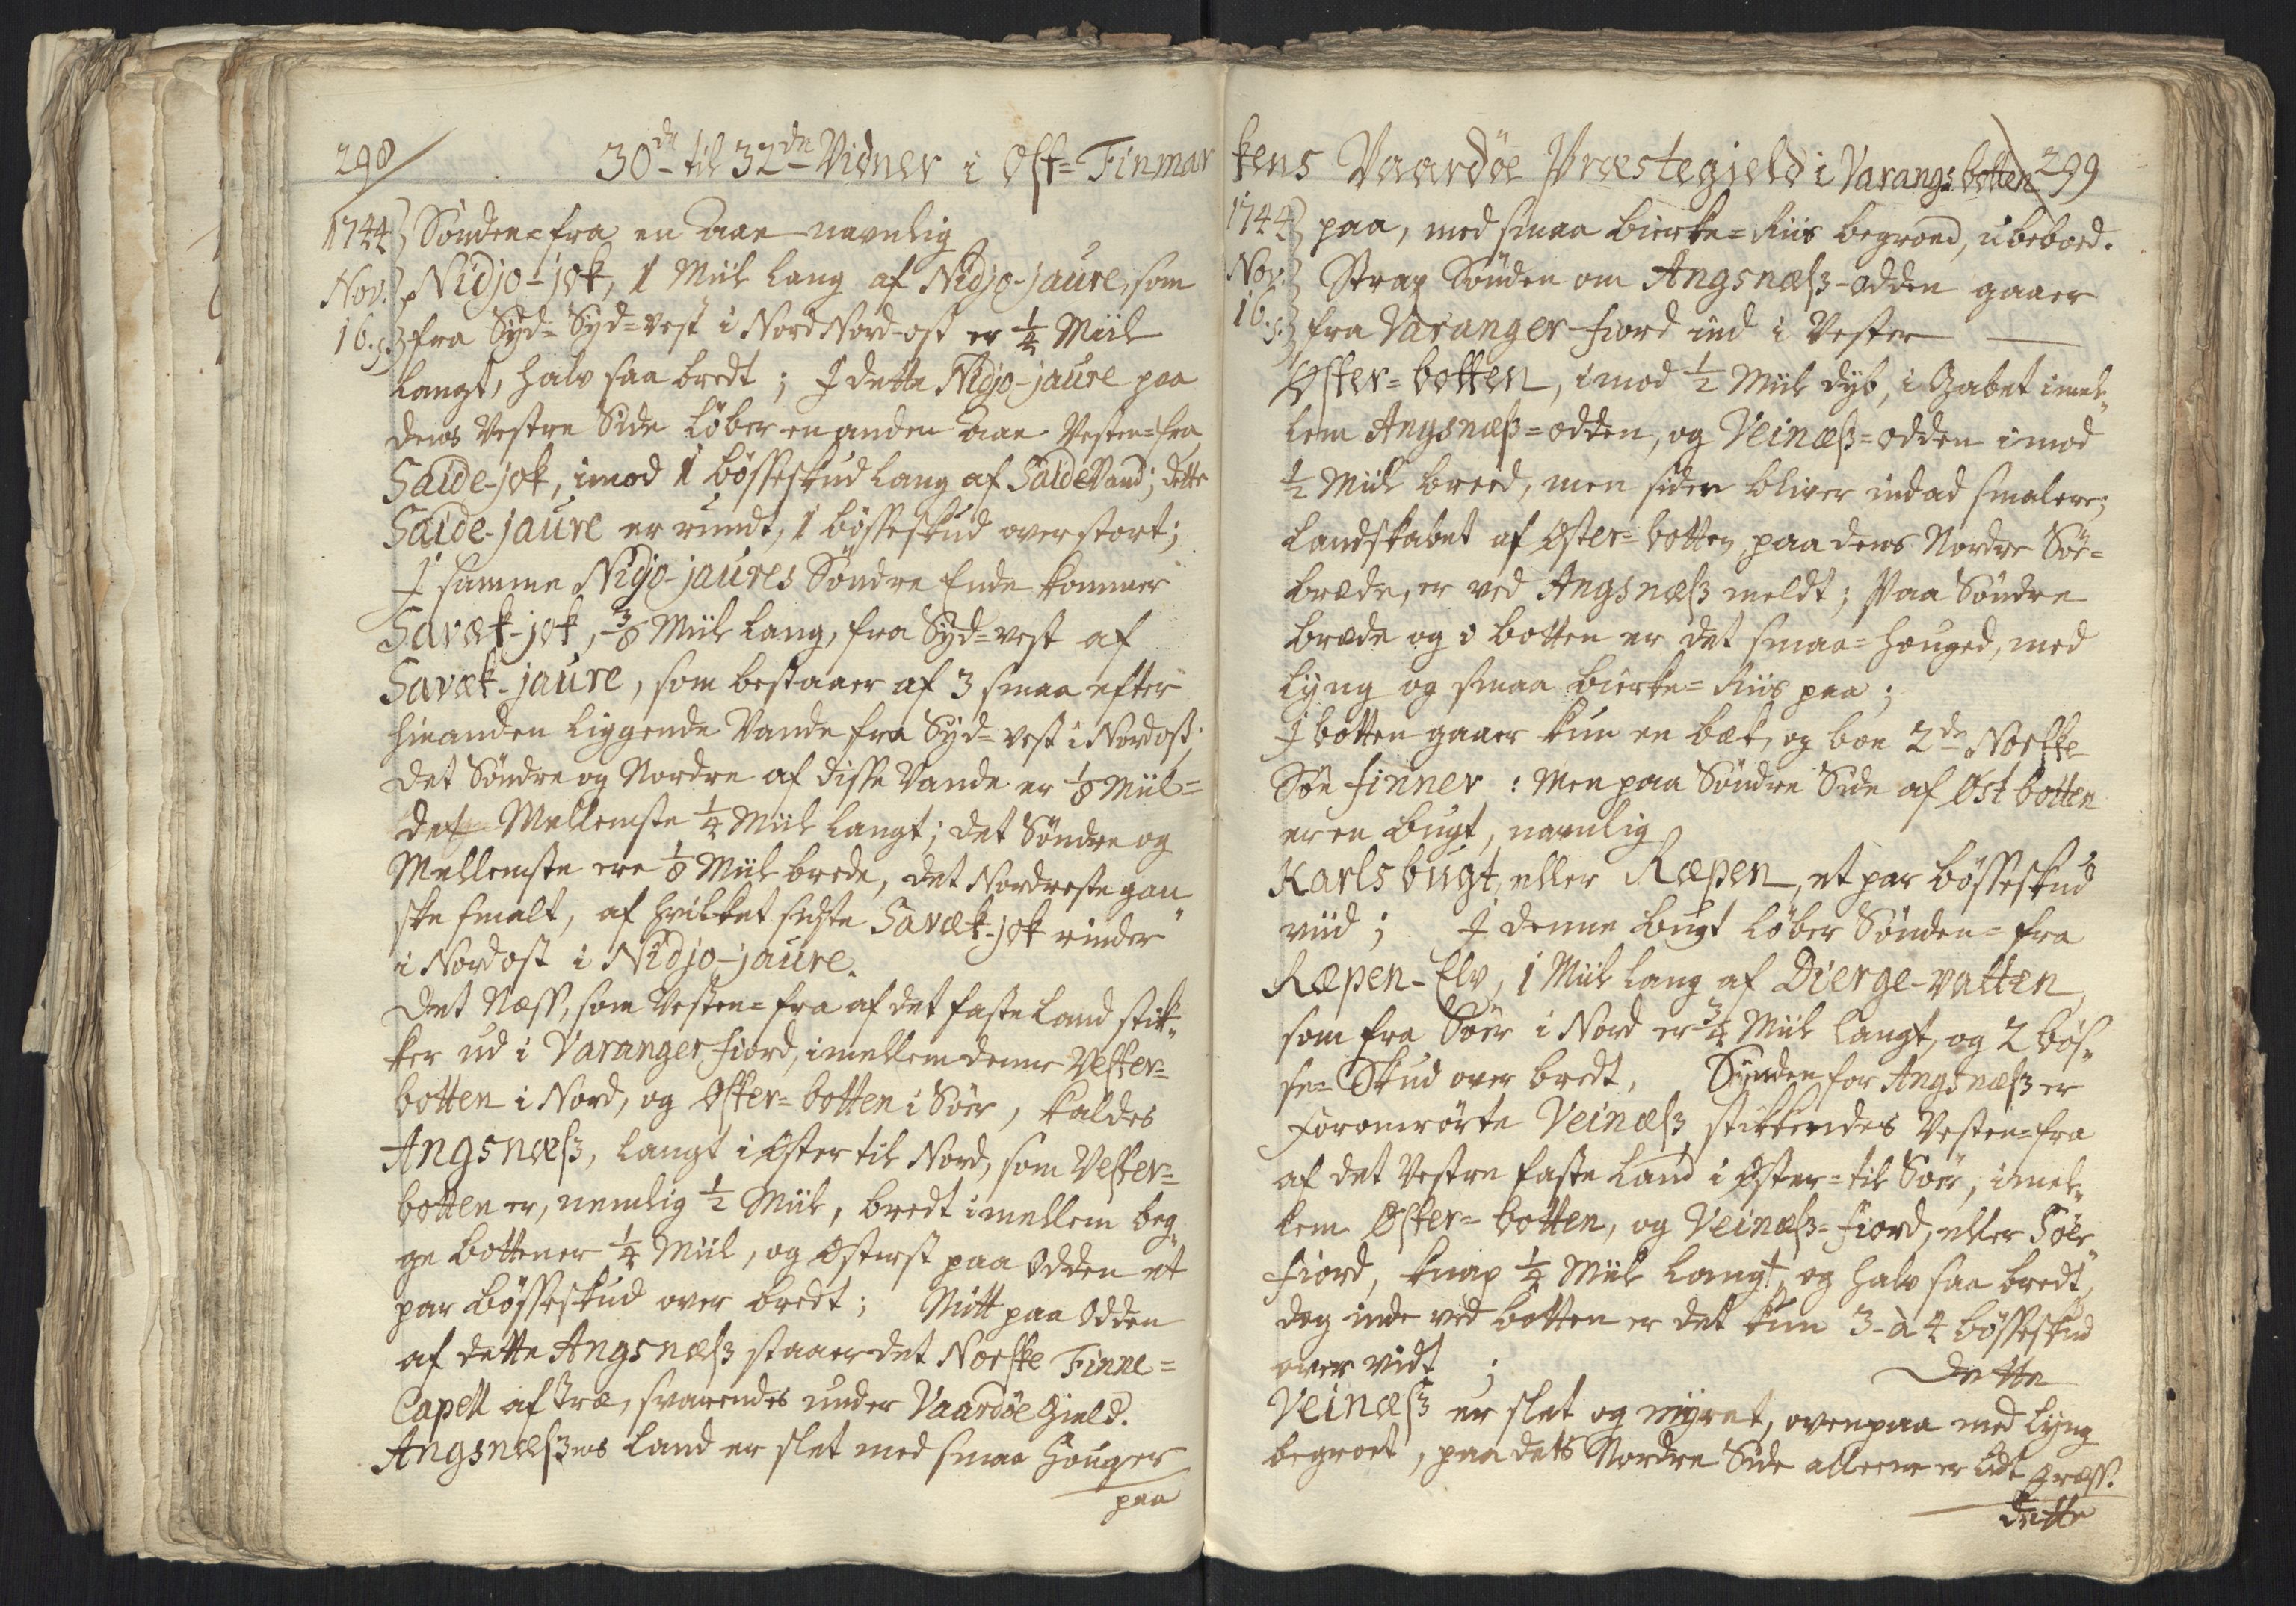 298
30de til 32de Vidner i Ost=Finmar
1744 Sønden=fra en Aae navnlig
Nov. Nidjo-jok, 1 Miil lang af Nidjo-jaure, som
16. s. fra Syd=Syd=vest i NordNord-ost er 1/4 Miil
langt, halv saa bredt; I dette Nidjo-jaure paa
dens Vestre Side løber en anden Aae Vesten=fra
Saide-jok, imod 1 bösseskud lang af SaideVand; dette
Saide-jaure er rundt, 1 bösseskud over stort;
I samme Nigjo-jaures Søndre Ende kommer
Savæk-jok, 3/8 Miil lang, fra Syd=vest af
Savæk-jaure, som bestaaer af 3 smaa efter
hinanden liggende Vande fra Syd=vest i Nordost;
det Søndre og Nordre af disse Vande er 1/8 Miil=
det Mellemste 1/4 Miil langt; det Søndre og
Mellemste ere 1/8 Miil brede, det Nordreste gan„
ske smalt, af hvilket sidste Savæk-jok rinder
i Nordost i Nidjo-jaure.
Det Næss, som Vesten=fra af det faste Land stik„
ker ud i Varanger fiord, imellem denne Vester=
botten i Nord, og Øster=botten i Sör, kaldes
Angsnæss, langt i Øster til Nord, som Vester=
botten er, nemlig 1/2 Miil, bredt imellem beg„
ge bottener 1/4 Miil, og Østerst paa Odden et
par bösseskud over bredt; Mitt paa Odden
af dette Angsnæss staaer det Norske Finne=
Capell af træ, svarendes under Vaardöe Gield.
Angsnæssens Land er slet med smaa Houger
paa
kens Vaardöe Præstegield i Varangsbotten 299
1744 paa, med smaa bierke=Riis begroed, ubeboed.
Nov. Strax Sønden om Angsnæss-Odden gaaer
16. s. fra Varanger-fiord ind i Vester
Øster=botten, imod 1/2 Miil dyb, i Gabet imel„
lem Angsnæss=odden, og Veinæss=odden imod
1/2 Miil breed, men siden bliver indad smalere;
Landskabet af Øster=botten paa dens Nordre Söe=
bredde, er ved Angsnæss meldt; Paa Søndre
bredde og i botten er det smaa=houged, med
Lyng og smaa bierke=Riis paa;
I botten gaaer kun en bæk, og boe 2de Norske
Söe finner: Men paa Søndre Side af Østbotten
er en bugt, navnlig
Karlsbugt, eller Ræpen, et par bösseskud
viid; I denne bugt løber Sønden=fra
Ræpen-Elv, 1 Miil lang af Dierge-vatten,
som fra Sör i Nord er 3/4 Miil langt, og 2 bös„
se=Skud over bredt, Synden for Angsnæss er
foromrørte Veinæss, stikkendes Vesten=fra
af det Vestre faste Land i Øster=til Sör, imel„
lem Øster=botten, og Veinæss=fiord, eller Söe„
fiord, knap 1/4 Miil langt, og halv saa bredt,
dog inde ved botten er det kun 3-à 4 bösseskud
over vidt; Dette
Veinæss er slet og myret, ovenpaa med Lyng
begroet, paa dets Nordre Side alleene er lidt Græss.
Dette